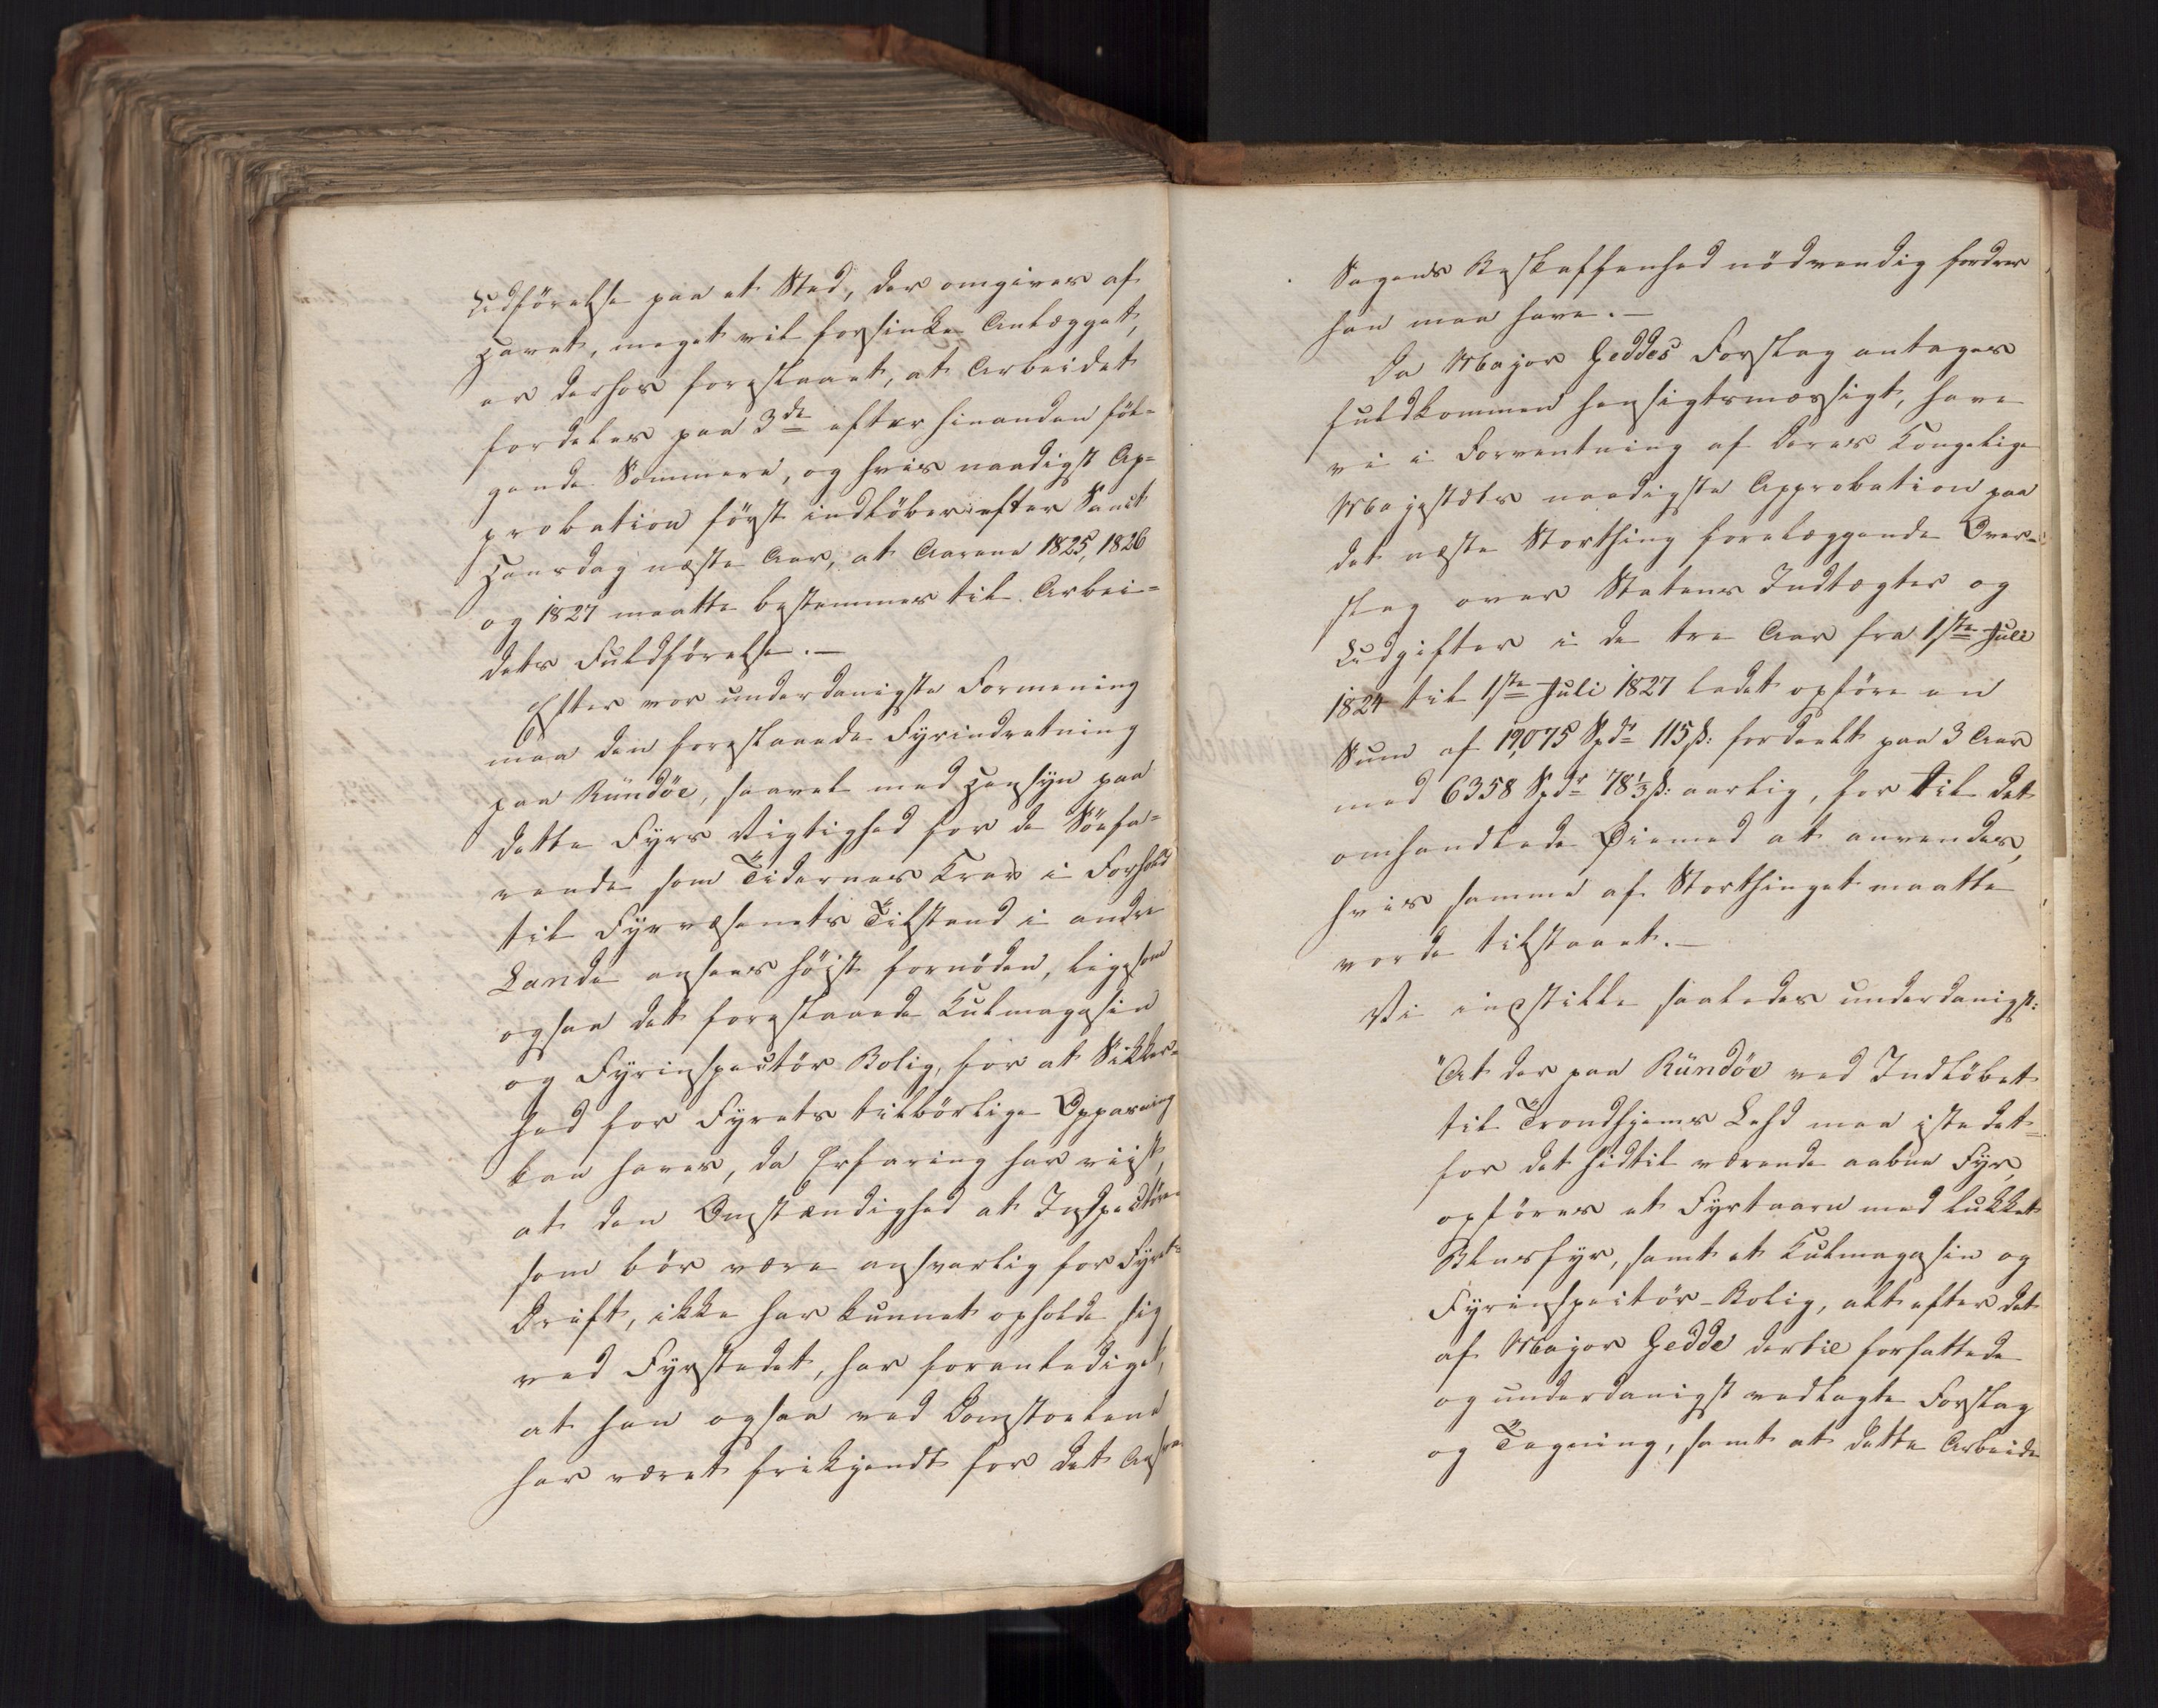 Udförelse paa et Sted, der omgives af
Havet, meget vil forsinke Anlægget,
er derhos foreslaaet, at Arbeidet
fordeles paa 3de efter hinanden föl-
gende Sommere, og hvis naadigst Ap-
probation först indlöber efter Sanct
Hansdag næste Aar, at Aarene 1825, 1826
og 1827 maatte bestemmes til Arbei-
dets Fuldförelse. —
Efter vor underdanigste Formening
maa den foreslaaede Fyrindretning
paa Rundöe, saavel med Hensyn paa
dette Fyrs Vigtighed for de Söefa-
rende som Tidernes Krav i Forhold
til Fyrvæsenets Tilstand i andre
Lande ansees höist fornöden, ligesom
ogsaa det foreslaaede Kulmagasin
og Fyrinspectör Bolig, for at Sikker-
hed for Fyrets tilbörlige Oppasning
kan haves, da Erfaring har viist,
at den Omstændighed at Inspectören
som bör være ansvarlig for Fyrets
Drift, ikke har kunnet opholde sig
ved Fyrstedet, har foranlediget,
at han ogsaa ved Domstolene
har været frikjendt for det Ansvar
Sagens Beskaffenhed nödvendig fordrer
han maa have. —
Da Major Geddes Forslag antages
fuldkommen hensigtsmæssigt, have
vi i Forventning af Deres Kongelige
Majestæts naadigste Approbation paa
det næste Storthing forelæggende Over-
slag over Statens Indtægter og
Udgifter i de tre Aar fra 1ste Juli
1824 til 1ste Juli 1827 ladet opföre en
Sum af 19,075 Spdr 115 ß: fordeelt paa 3 Aar
med 6358 Spdr 78 1/3 ß: aarlig, for til det
omhandlede Öiemed at anvendes,
hvis samme af Storthinget maatte
vorde tilstaaet. —
Vi indstille saaledes underdanigst:
"At der paa Rundöe ved Indlöbet
til Trondhjems Lehd maa istedet-
for det hidtil værende aabne Fyr,
opföres et Fyrtaarn med lukket
Blusfyr, samt et Kulmagasin og
Fyrinspectör-Bolig, alt efter det
af Major Gedde dertil forfattede
og underdanigst vedlagte Forslag
og Tegning, samt at dette Arbeide